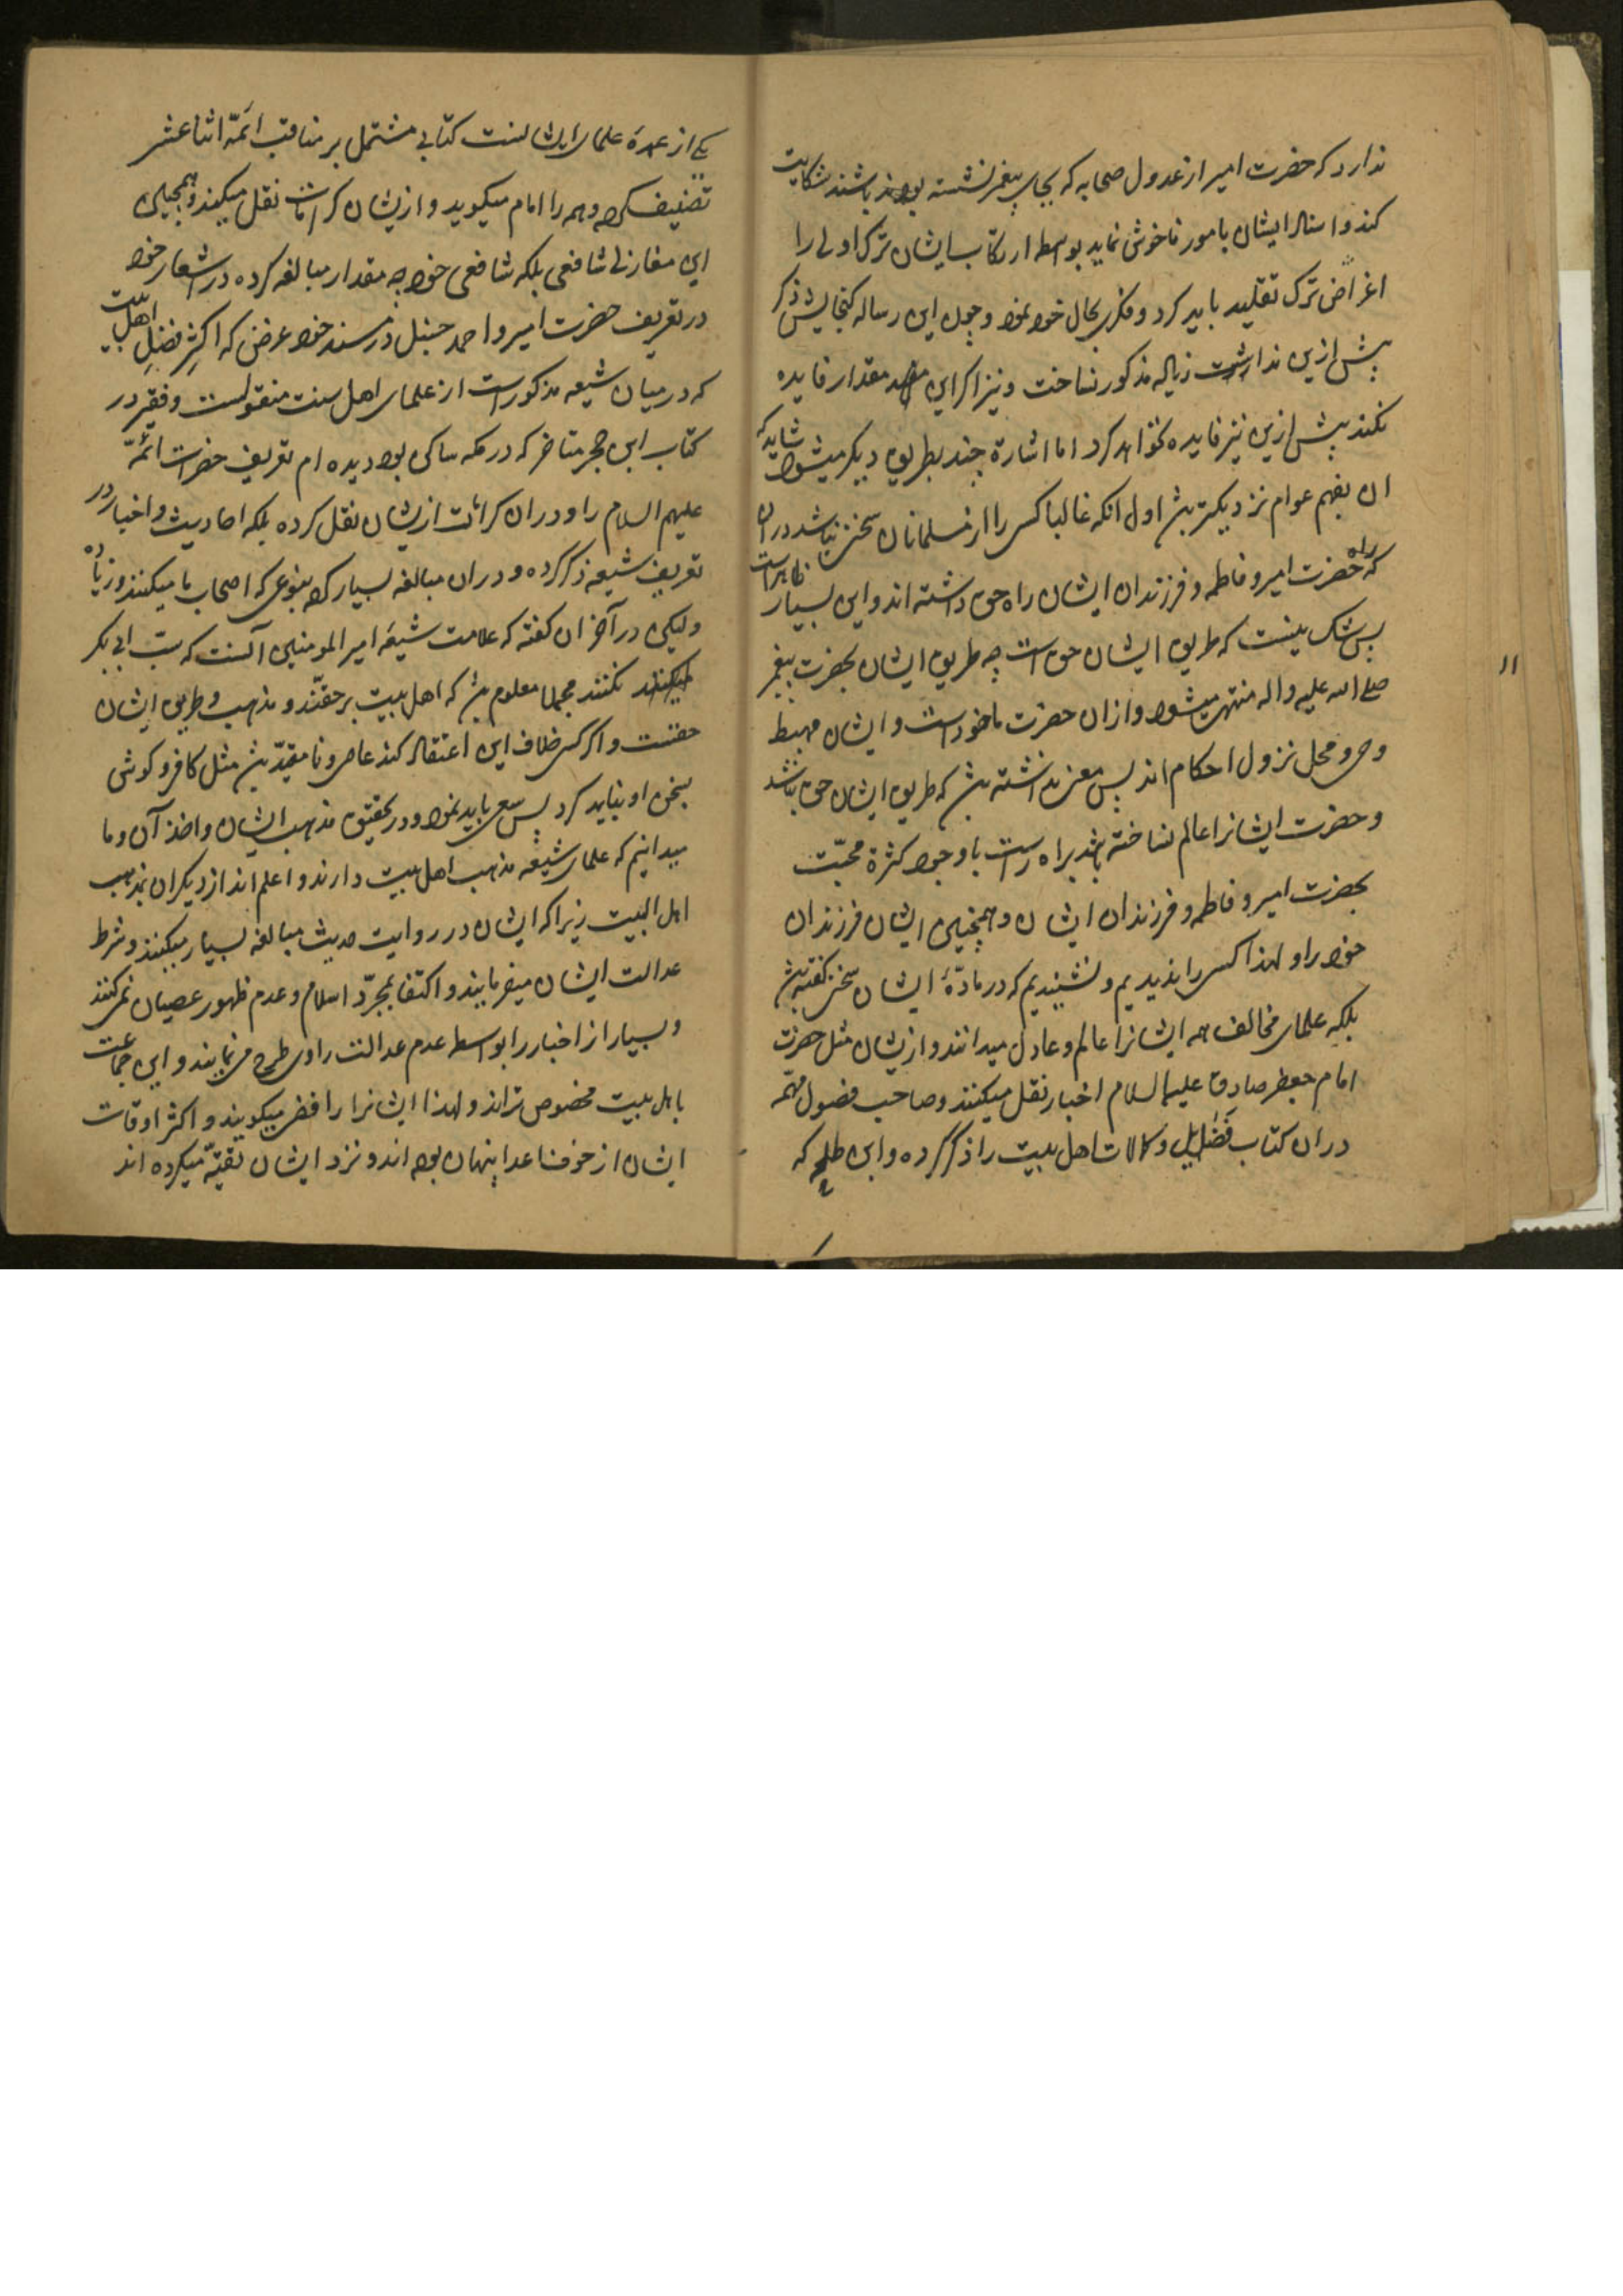 ندارد که حضرت امیر از عدول صحابه که بجای پیغمبر نشسته بوده باشند شکایت
کند و اسناد ایشان بامور ناخوش نماید بواسطه ارتکاب ایشان ترک اولی را
اغراض ترک تقلید باید کرد و فکری بحال خود نمود و چون این رساله گنجایش ذکر
بیش ازین نداشت زیاده مذکور نساخت و نیز اگر این مقدار فایده
نکند بیش ازین نیز فایده نخواهد کرد اما اشارة چند بطریق دیگر میشود شاید که
ان بفهم عوام نزدیکتر بش اول انکه غالبا کسی را از مسلمانان سخنی نباشد در ان
که راه حضرت امیر و فاطمه و فرزندان ایشان راه حق داشته اند و این بسیار ظاهر است
پس شک نیست که طریق ایشان حق است چه طریق ایشان بحضرت پیغمبر
صلی الله علیه واله منتهی میشود و ازان حضرت ماخوذ است و ایشان مهبط
وحی و محل نزول احکام اند پس معنی نداشته بش که طریق ایشان حق نباشد
و حضرت ایشانرا عالم نساخته باشد براه راست باوجود کثرة محبّت
بحضرت امیر و فاطمه و فرزندان ایشان و همچنین ایشان فرزندان
خود را و لهذا کسی را ندیدیم و نشنیدیم که در مادّهٔ ایشان سخنی گفته بش
بلکه علمای مخالف همه ایشانرا عالم و عادل میدانند و ازیشان مثل حضرت
امام جعفر صادق علیه السلام اخبار نقل میکنند و صاحب فصول مهمّه
در ان کتاب فضایل و کمالات اهل بیت را ذکر کرده و ابن طلحه که
۱۱
یکی از عمدهٔ علمای ایشانست کتابی مشتمل بر مناقب ائمّه اثنا عشر
تصنیف کرده و همه را امام میگوید و ازیشان کرامات نقل میکند و همچنین
ابن مغازلی شافعی بلکه شافعی خود چه مقدار مبالغه کرده در اشعار خود
در تعریف حضرت امیر و احمد حنبل در مسند خود غرض که اکثر فضل اهل بیت
که در میان شیعه مذکور است از علمای اهل سنت منقولست و فقیر در
کتاب ابن حجر متاخر که در مکه ساکن بود دیده ام تعریف حضرات ائمّه
علیهم السلام را و در ان کرامات ازیشان نقل کرده بلکه احادیث و اخبار در
تعریف شیعه ذکر کرده و در ان مبالغه بسیار کرده بنوعی که اصحاب ما میکنند و زیاده
ولیکن در آخر ان گفته که علامت شیعهٔ امیر المومنین آنست که سبّ ابی بکر
نکنند مجملا معلوم بش که اهل بیت بر حقّند و مذهب و طریق ایشان
حقست و اگر کسی خلاف این اعتقاد کند عاصی و نامقیّد بش مثل کافر و گوش
بسخن او نباید کرد پس سعی باید نمود و در تحقیق مذهب ایشان و اخذ آن و ما
میدانیم که علمای شیعه مذهب اهل بیت دارند و اعلم اند از دیگران بمذهب
اهل البیت زیرا که ایشان در روایت حدیث مبالغه بسیار میکنند و شرط
عدالت ایشان میفرمایند و اکتفا بمجرّد اسلام و عدم ظهور عصیان نمی کنند
و بسیار از اخبار را بواسطه عدم عدالت راوی طرح می نمایند و این جماعت
باهل بیت مخصوص تراند و لهذا ایشانرا رافضی میگویند و اکثر اوقات
ایشان از خوف اعدا پنهان بوده اند و نزد ایشان تقیّه میکرده اند